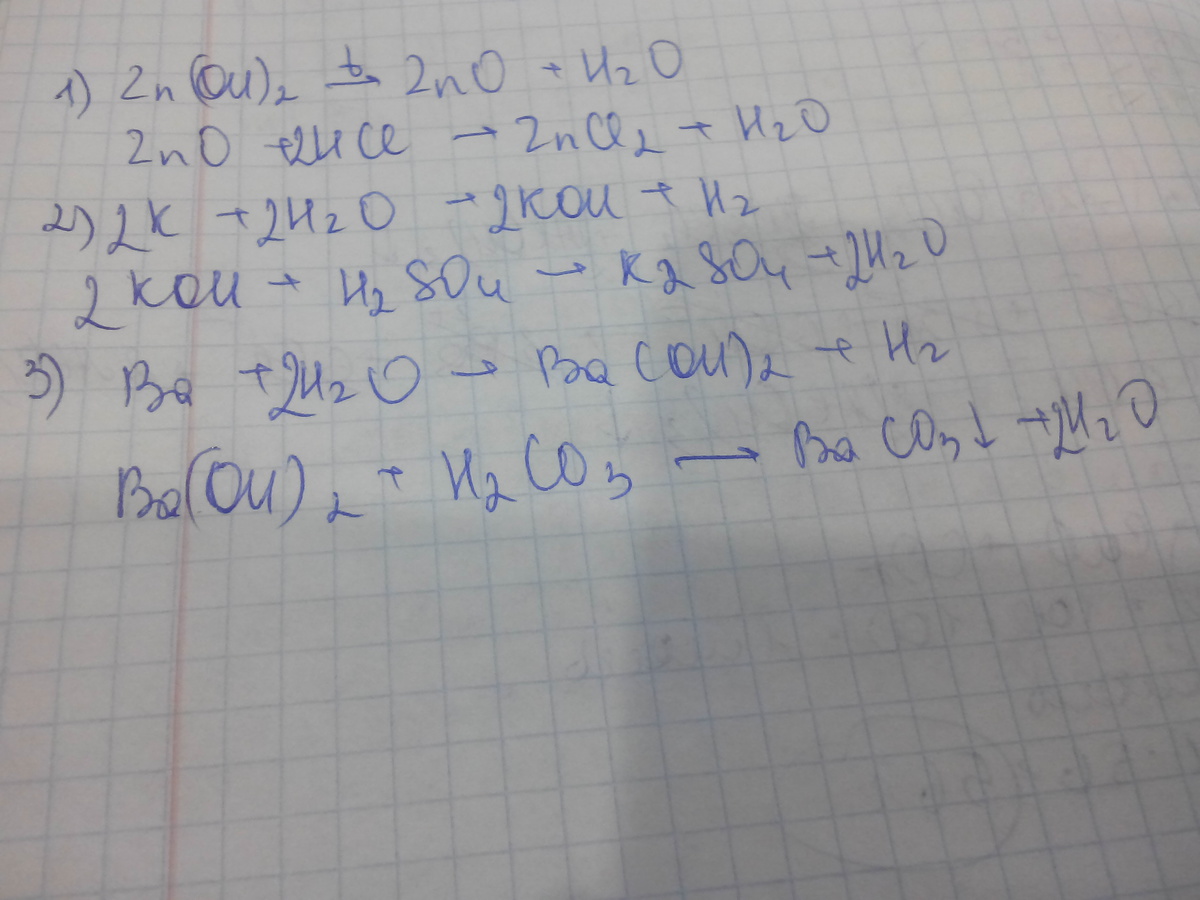 1) Zn(OH)₂ →ᵗ ZnO + H₂O
ZnO + 2HCl → ZnCl₂ + H₂O
2) 2K + 2H₂O → 2KOH + H₂
2KOH + H₂SO₄ → K₂SO₄ + 2H₂O
3) Ba + 2H₂O → Ba(OH)₂ + H₂
Ba(OH)₂ + H₂CO₃ → BaCO₃↓ + 2H₂O